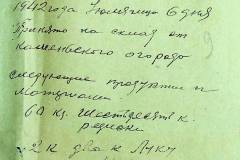 1942 года Июля месяца 6 дня
Принято на склад от
Каменского огорода
следующие продукты и
материалы
60 кг. шестьдесят к.
редиски
2 к два к Луку